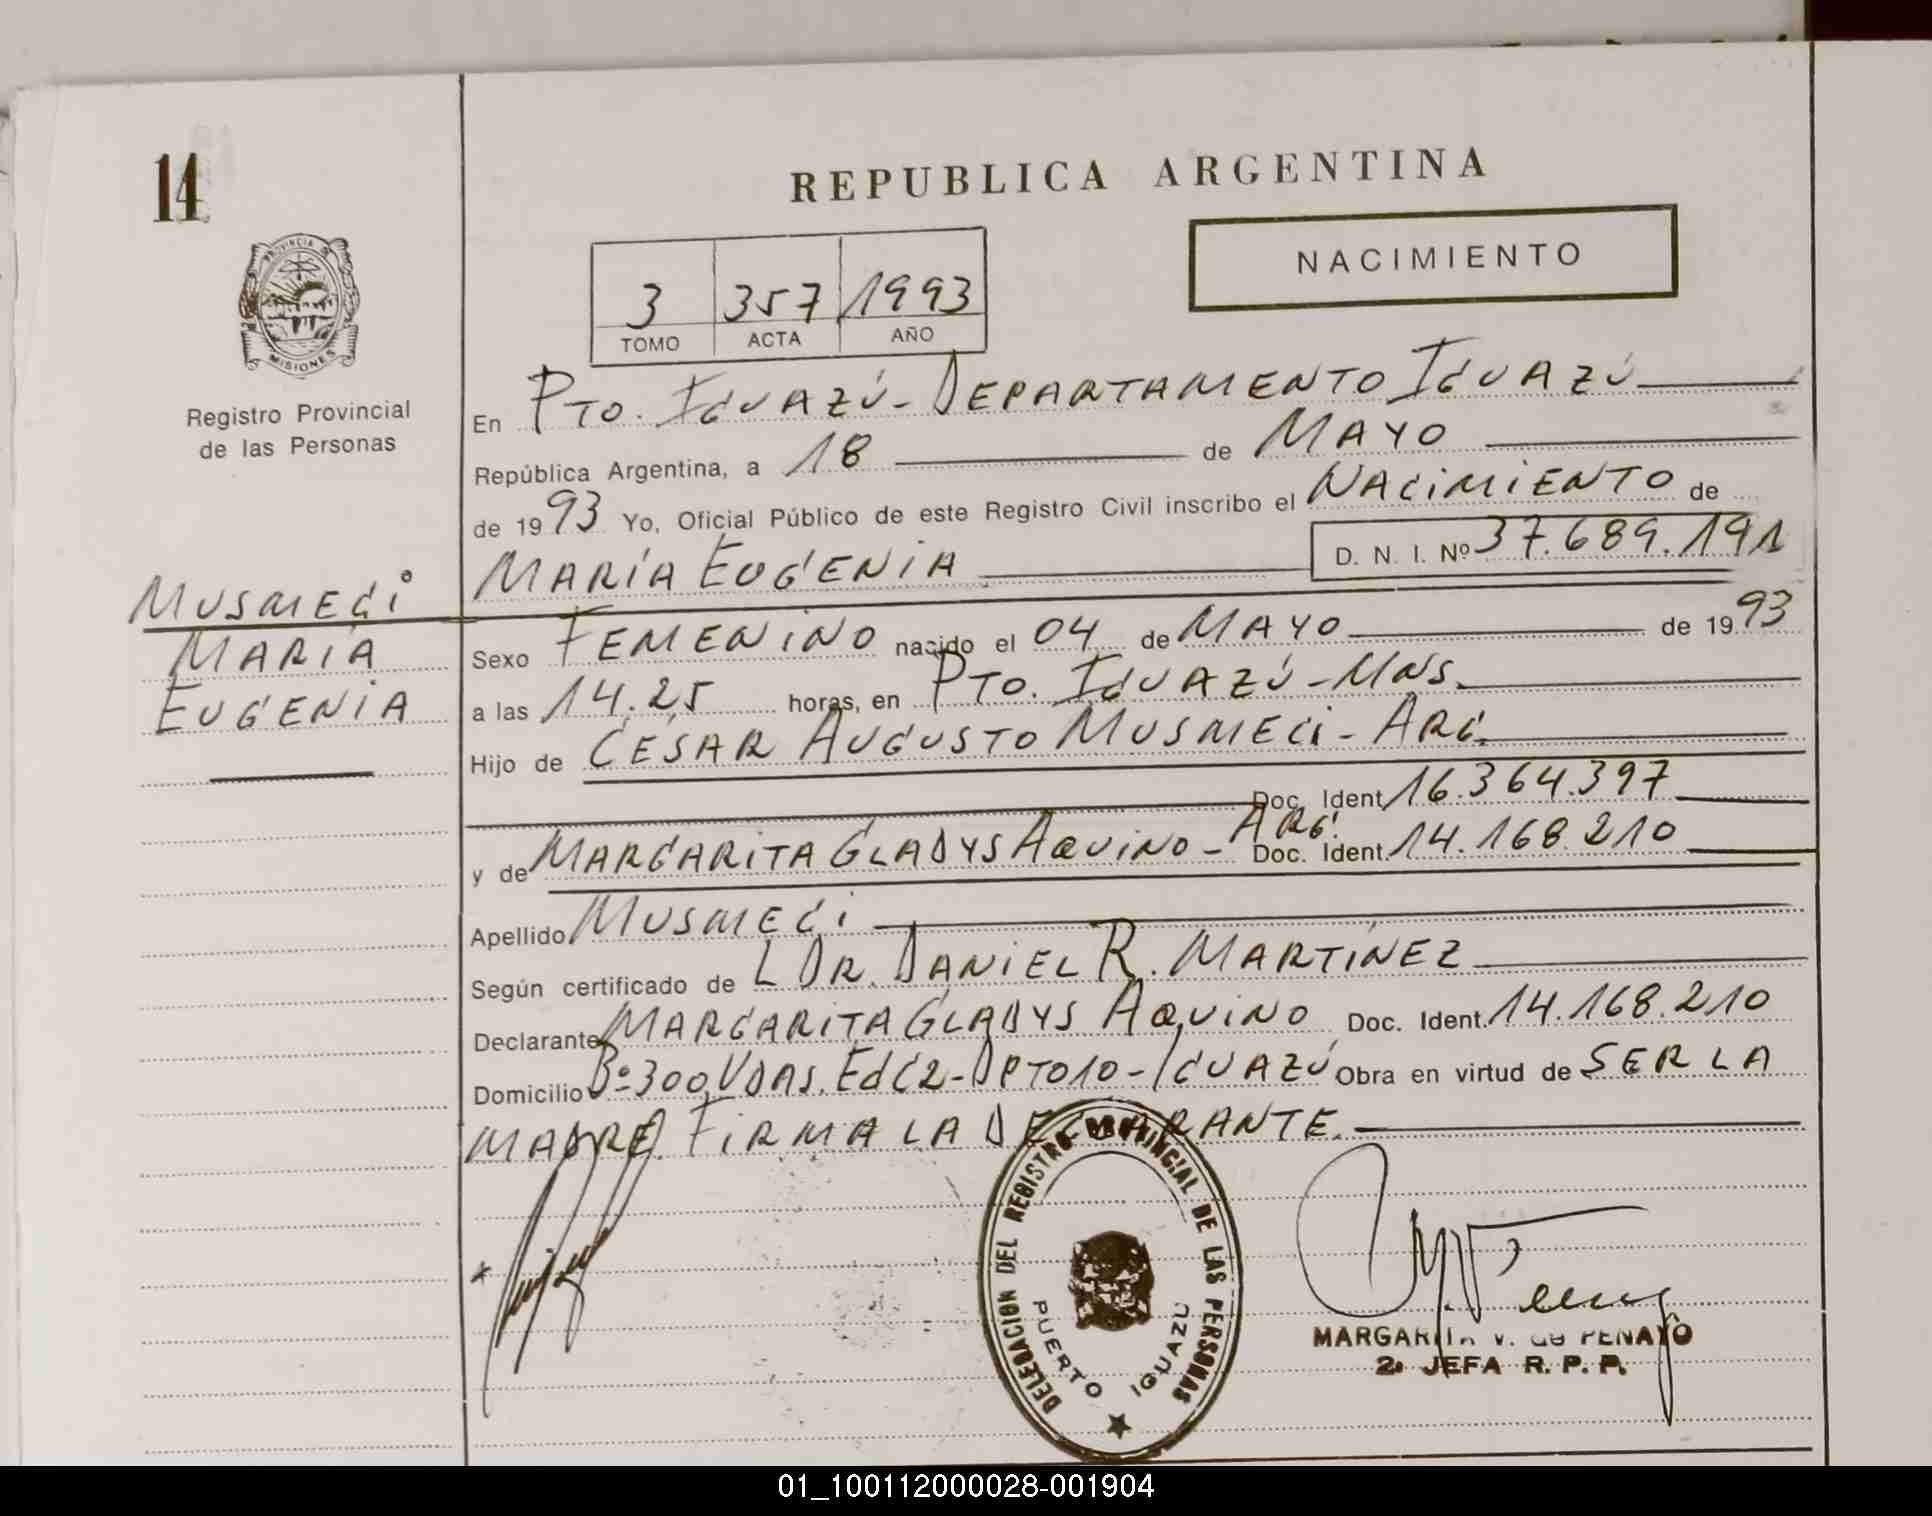 14
REPUBLICA ARGENTINA
NACIMIENTO
3 357 1993
TOMO ACTA AÑO
PROVINCIA DE MISIONES
Registro Provincial
de las Personas
MUSMECI
MARIA
EUGENIA
En PTO. IGUAZÚ - DEPARTAMENTO IGUAZÚ
República Argentina, a 18 de MAYO
de 1993 Yo, Oficial Público de este Registro Civil inscribo el NACIMIENTO de
MARÍA EUGENIA D. N. I. Nº 37.689.191
Sexo FEMENINO nacido el 04 de MAYO de 1993
a las 14.25 horas, en PTO. IGUAZÚ - MNS.
Hijo de CÉSAR AUGUSTO MUSMECI - ARG.
Doc. Ident. 16.364.397
y de MARGARITA GLADYS AQUINO - ARG. Doc. Ident. 14.168.210
Apellido MUSMECI
Según certificado de L DR. DANIEL R. MARTÍNEZ
Declarante MARGARITA GLADYS AQUINO Doc. Ident. 14.168.210
Domicilio Bº 300 VDAS. EDC2 - DPTO 10 - IGUAZÚ Obra en virtud de SER LA
MADRE. FIRMA LA DECLARANTE.
DELEGACION DEL REGISTRO PROVINCIAL DE LAS PERSONAS
PUERTO IGUAZU
MARGARITA V. de PENAYO
2ª JEFA R. P. P.
01_100112000028-001904